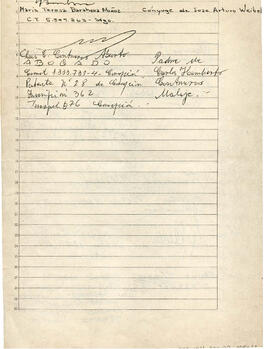 Maria Teresa Barahona Muñoz Cónyuge de Jose Arturo Weibel
C.I. 5.309.263 - Stgo.
Luis E. Contreras Aburto Padre de
ABOGADO Carlos Humberto
Carnet 1.333.739-4 Concepción, Contreras
Patente N° 28 de Concepción Maluje.-
Inscripción 362
Tucapel 876 Concepción.-